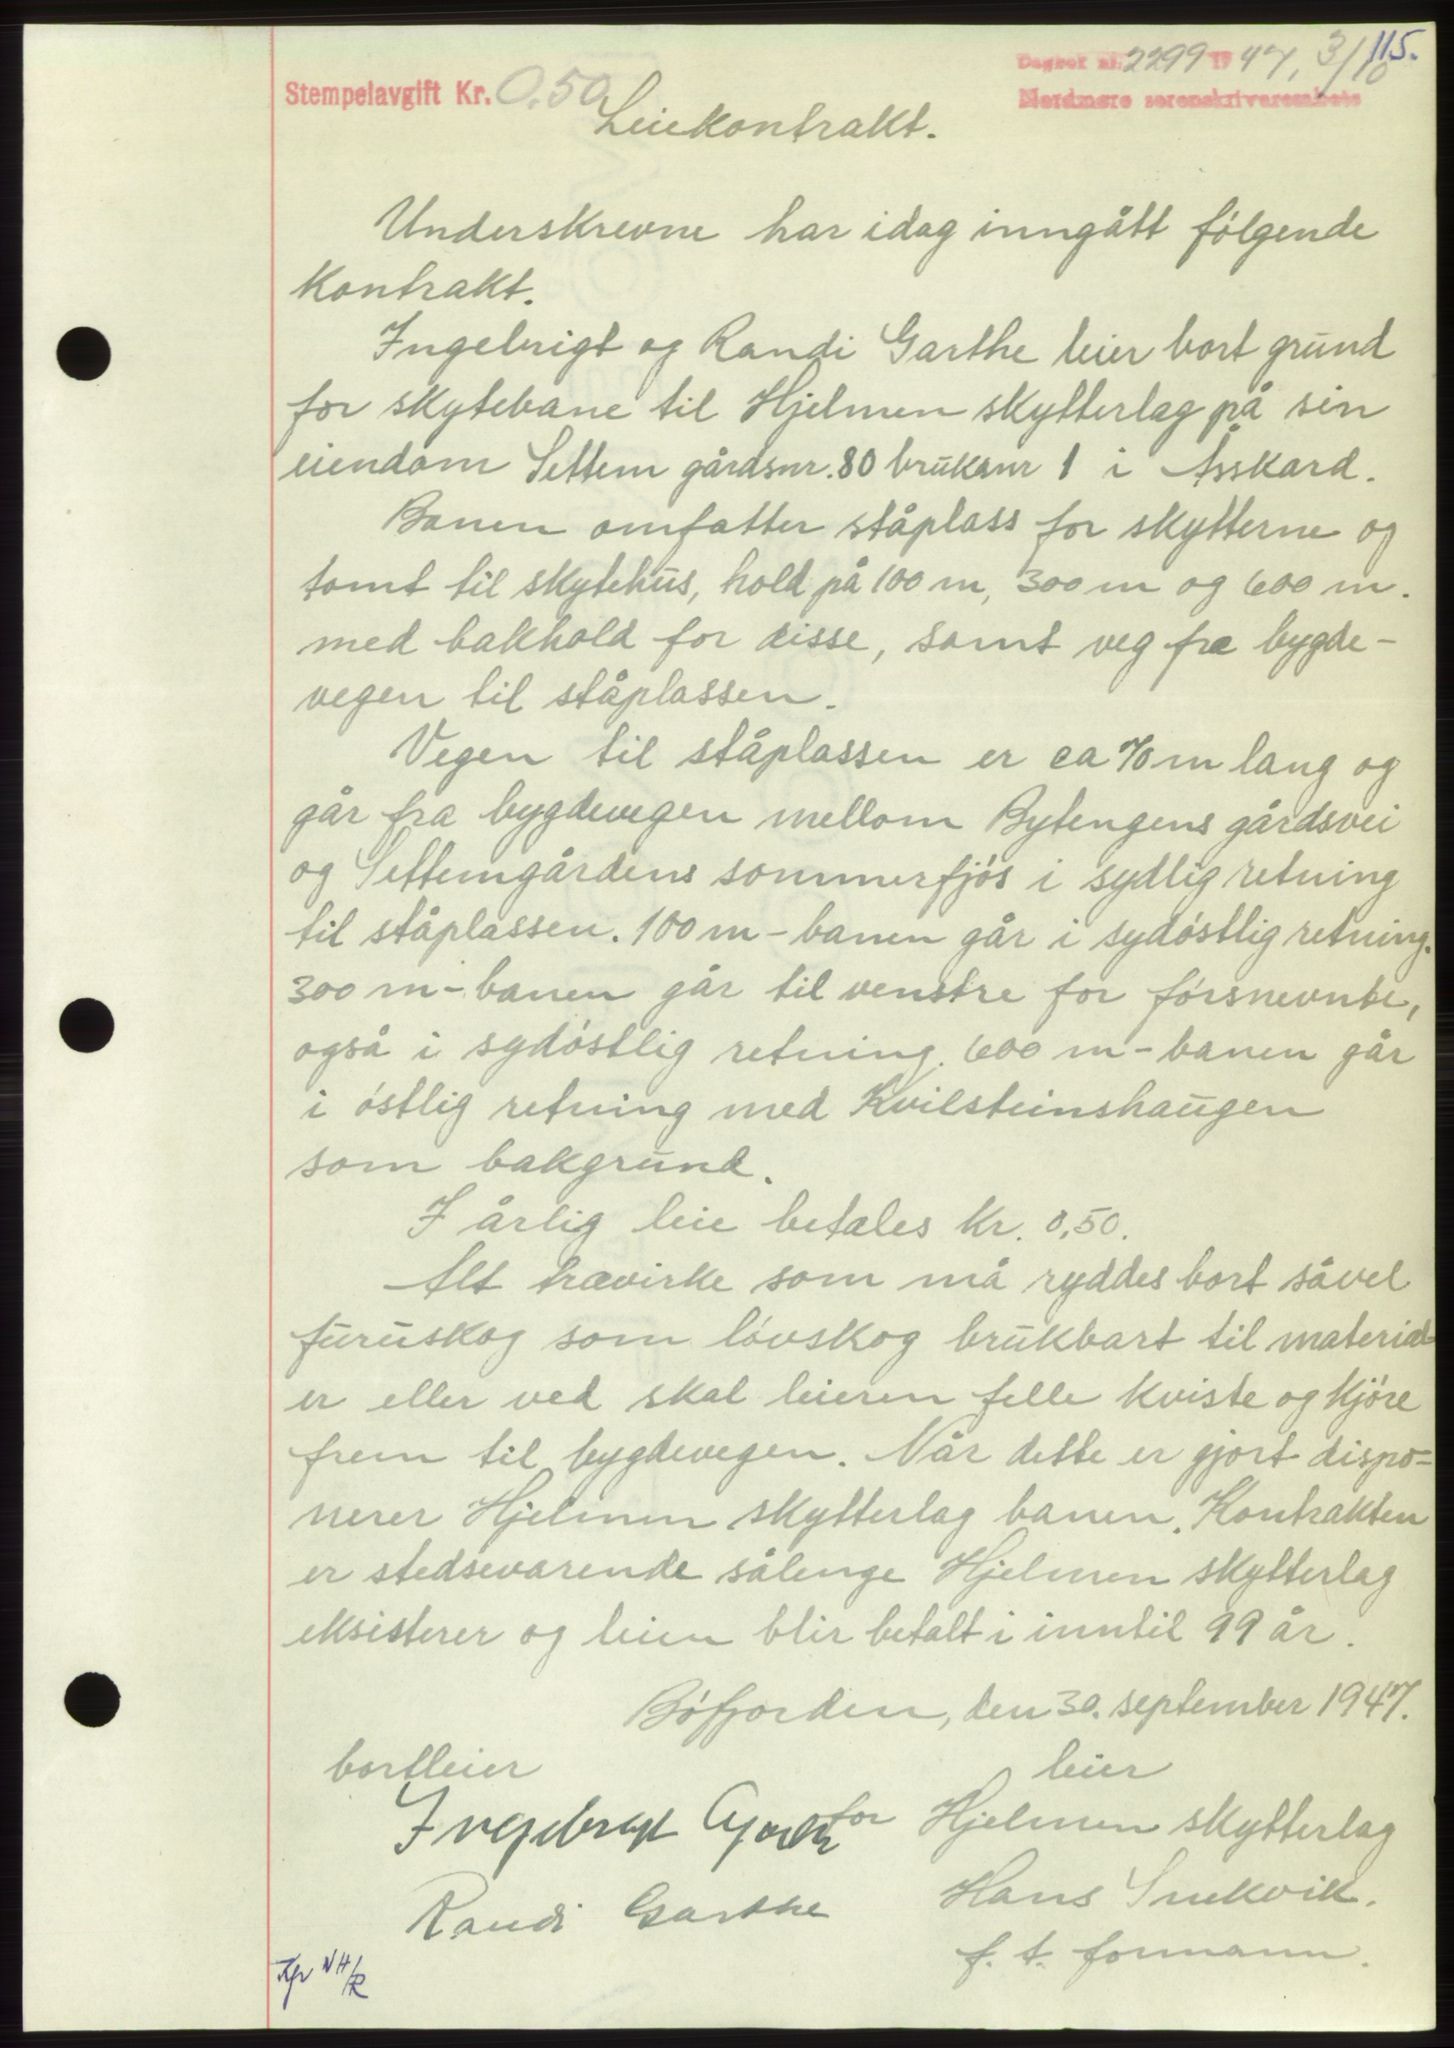 115.
Dagbok nr. 2299 1947, 3/10
Stempelavgift Kr. 0.50
Nordmøre sorenskriverembete
Leiekontrakt.
Underskrevne har idag inngått følgende
kontrakt.
Ingebrigt og Randi Garthe leier bort grund
for skytebane til Hjelmen skytterlag på sin
eiendom Settem gårdsnr. 80 bruksnr 1 i Åsskard.
Banen omfatter ståplass for skytterne og
tomt til skytehus, hold på 100 m, 300 m og 600 m.
med bakhold for disse, samt veg fra bygde-
vegen til ståplassen.
Vegen til ståplassen er ca 70 m lang og
går fra bygdevegen mellom Bytengens gårdsvei
og Settemgårdens sommerfjøs i sydlig retning
til ståplassen. 100 m-banen går i sydøstlig retning.
300 m-banen går til venstre for førsnevnte,
også i sydøstlig retning. 600 m-banen går
i østlig retning med Kvilsteinshaugen
som bakgrund.
I årlig leie betales Kr. 0,50.
Alt trævirke som må ryddes bort såvel
furuskog som løvskog brukbart til material-
er eller ved skal leieren felle kviste og kjøre
frem til bygdevegen. Når dette er gjort dispo=
nerer Hjelmen skytterlag banen. Kontrakten
er stedsevarende sålenge Hjelmen skytterlag
eksisterer og leien blir betalt i inntil 99 år.
Bøfjorden, den 30. september 1947.
bortleier leier
Ingebrigt Garthe for Hjelmen skytterlag
Randi Garthe Hans Snekvik.
f. t. formann.